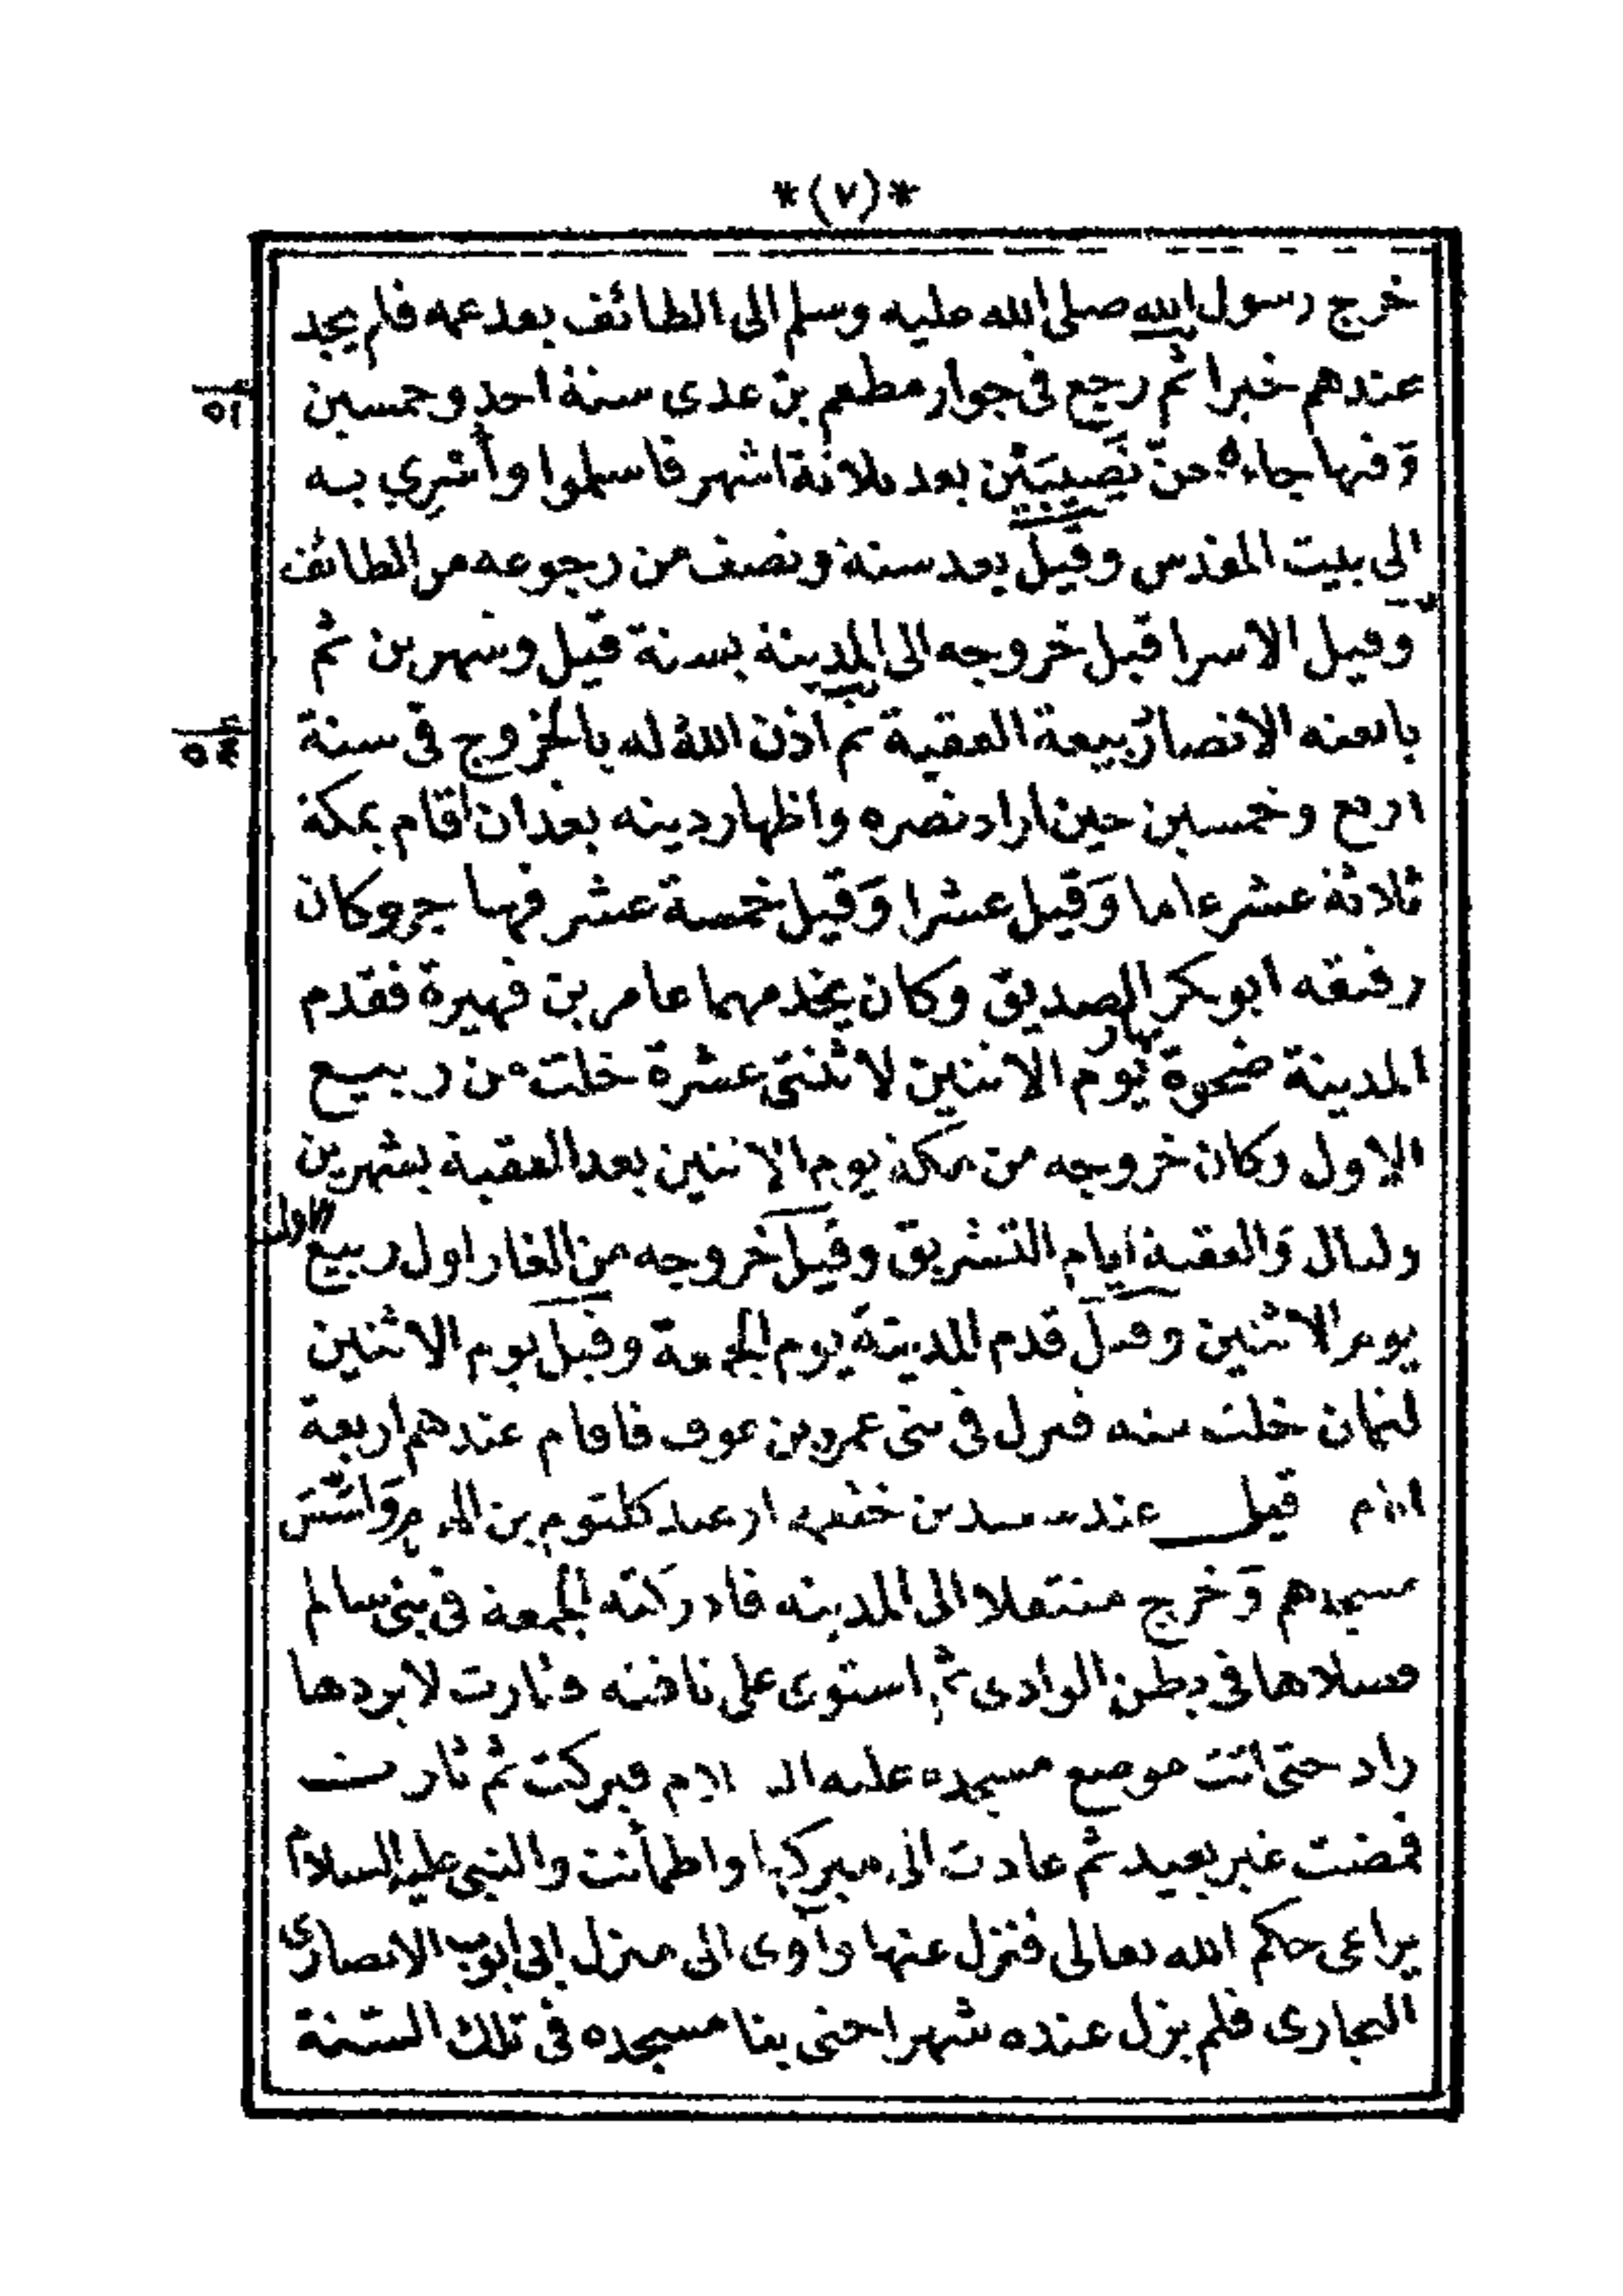 *(٧)*
خرج رسول الله صلى الله عليه وسلم الى الطائف بعد عمه فلم يجد
عندهم خيرا ثم رجع فى جوار مطعم بن عدى سنة احد وخمسين
٥١
وَفيها جاءه جنّ نَصِيبَيْن بعد ثلاثة اشهر فاسلموا وأُسْرِي به
الى بيت المقدس وقيل بعد سنة ونصف من رجوعه من الطائف
وقيل الاسرا قبل خروجه الى المدينة بسنة قيل وشهرين ثم
بايعته الانصارُ بيعة العقبة ثم اذن اللهُ له بالخروج فى سنة
٥٤
اربع وخمسين حين اراد نصره واظهار دينه بعد ان اقام بمكة
ثلاثة عشر عاما وَقيل عشرا وَقيل خمسة عشر فهاجر وكان
رفيقه ابو بكر الصديق وكان يخدمهما عامر بن فهيرة فقدم
المدينة ضحوة نهار يوم الاثنين لاثنتى عشرة خلت من ربيع
الاول وكان خروجه من مكة يوم الاثنين بعد العقبة بشهرين
وليال وَالعقبة ايام التشريق وقيل خروجه من الغار اول ربيع الاول
يوم الاثنين وقيل قدم المدينة يوم الجمعة وقيل يوم الاثنين
لثمان خلت منه فنزل فى بنى عمرو بن عوف فاقام عندهم اربعة
ايام قيل عند سعد بن خيثمة او عند كلثوم بن الهدم وَاسّسَ
مسجدهم وَخرج منتقلا الى المدينه فادركته الجمعة فى بنى سالم
فصلاها فى بطن الوادى ثم استوى على ناقته وثارت لا يردها
راد حتى اتت موضع مسجده عليه السلام فبركت ثم ثارت
فمضت غير بعيد ثم عادت الى مبركها واطمأنت والنبى عليه السلام
يراعى حكم الله تعالى فنزل عنها وآوى الى منزل ابى ايوب الانصارى
النجارى فلم يزل عنده شهرا حتى بنا مسجده فى تلك السّنة